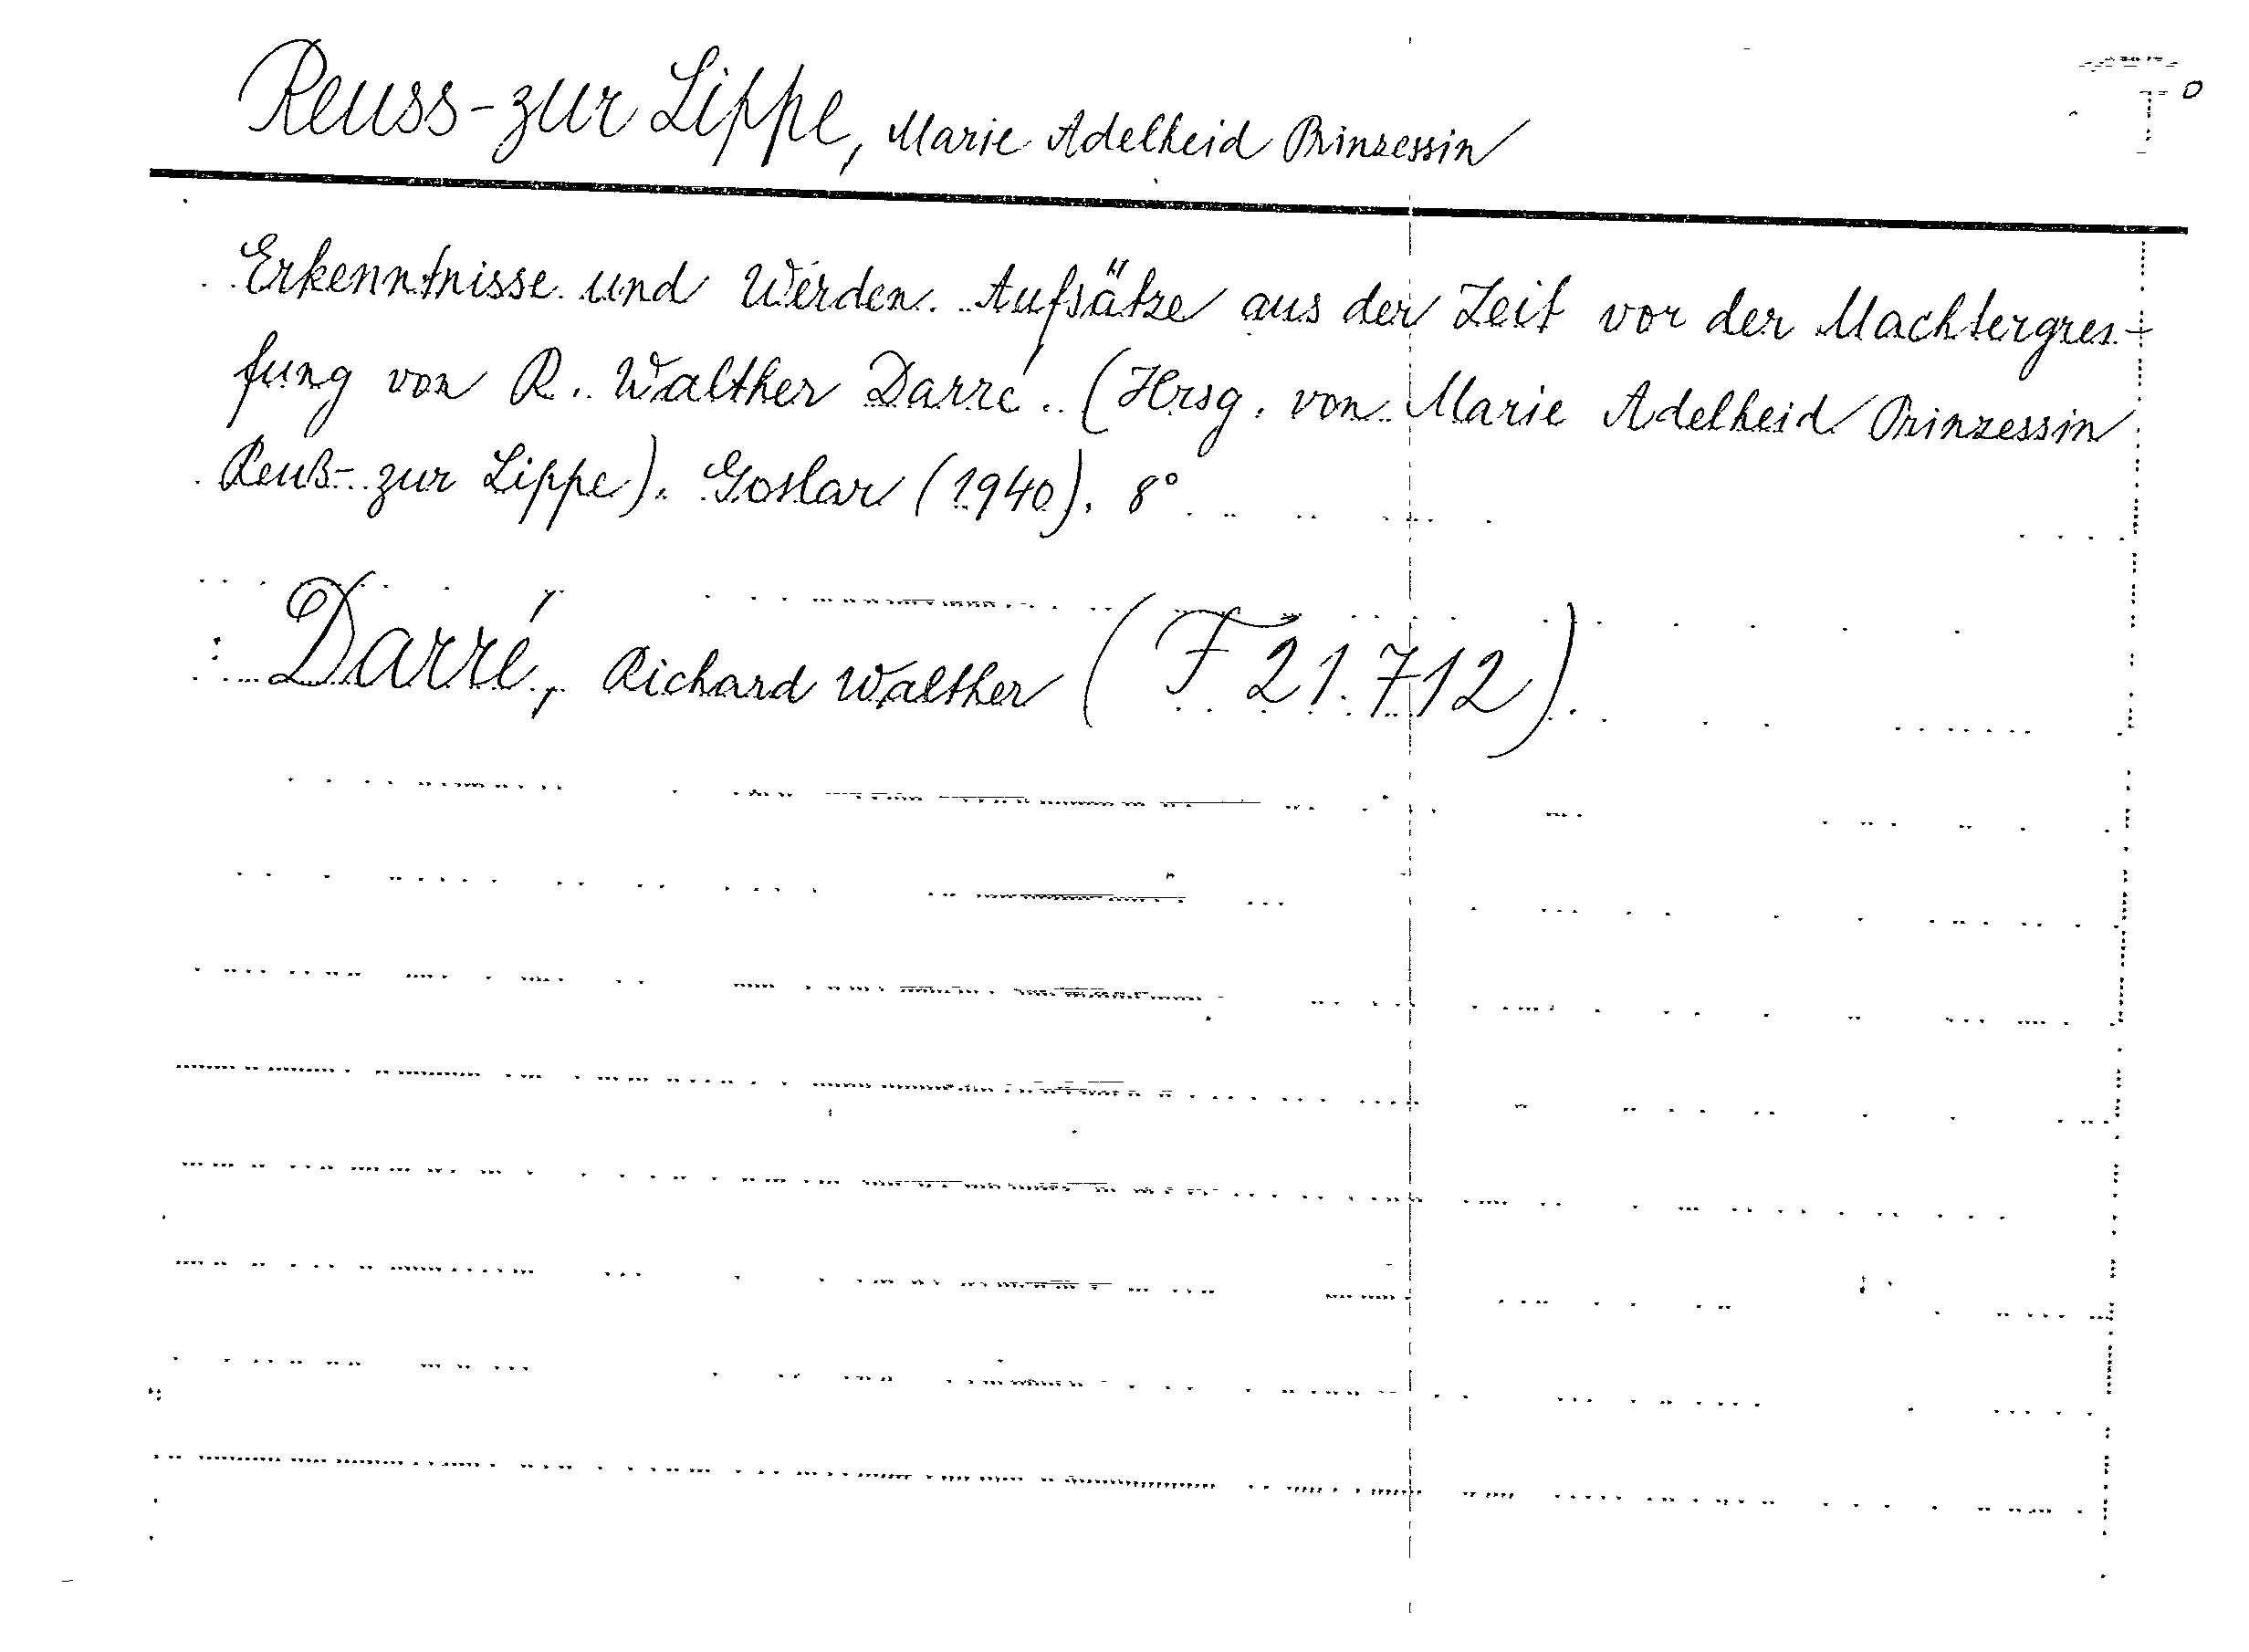 Reuss-zur Lippe, Marie Adelheid Prinzessin
Erkenntnisse und Werden. Aufsätze aus der Zeit vor der Machtergrei-
fung von R. Walther Darré. (Hrsg. von Marie Adelheid Prinzessin
Reuß-zur Lippe). Goslar (1940). 8°
Darré, Richard Walther (F 21.712).